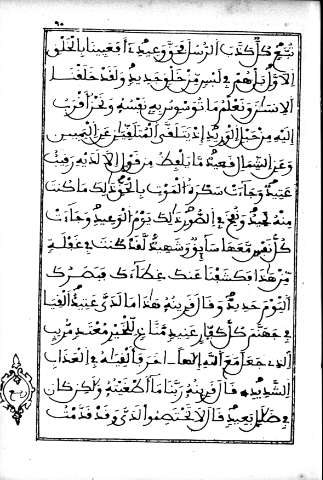 تُبَّعٍ كُلٌّ كَذَّبَ الرُّسُلَ فَحَقَّ وَعِيدِ أَفَعَيِينَا بِالْخَلْقِ
الْأَوَّلِ بَلْ هُمْ فِي لَبْسٍ مِنْ خَلْقٍ جَدِيدٍ وَلَقَدْ خَلَقْنَا
الْإِنسَٰنَ وَنَعْلَمُ مَا تُوَسْوِسُ بِهِ نَفْسُهُ وَنَحْنُ أَقْرَبُ
إِلَيْهِ مِنْ حَبْلِ الْوَرِيدِ إِذْ يَتَلَقَّى الْمُتَلَقِّيَٰنِ عَنِ الْيَمِينِ
وَعَنِ الشِّمَالِ قَعِيدٌ مَّا يَلْفِظُ مِن قَوْلٍ إِلَّا لَدَيْهِ رَقِيبٌ
عَتِيدٌ وَجَآءَتْ سَكْرَةُ الْمَوْتِ بِالْحَقِّ ذَٰلِكَ مَا كُنتَ
مِنْهُ تَحِيدُ وَنُفِخَ فِي الصُّورِ ذَٰلِكَ يَوْمُ الْوَعِيدِ وَجَآءَتْ
كُلُّ نَفْسٍ مَّعَهَا سَآئِقٌ وَشَهِيدٌ لَّقَدْ كُنتَ فِي غَفْلَةٍ
مِّنْ هَٰذَا فَكَشَفْنَا عَنكَ غِطَآءَكَ فَبَصَرُكَ
الْيَوْمَ حَدِيدٌ وَقَالَ قَرِينُهُ هَٰذَا مَا لَدَيَّ عَتِيدٌ أَلْقِيَا
فِي جَهَنَّمَ كُلَّ كَفَّارٍ عَنِيدٍ مَّنَّاعٍ لِّلْخَيْرِ مُعْتَدٍ مُّرِيبٍ
الَّذِي جَعَلَ مَعَ اللَّهِ إِلَٰهًا اخَرَ فَأَلْقِيَٰهُ فِي الْعَذَابِ
الشَّدِيدِ قَالَ قَرِينُهُ رَبَّنَا مَآ أَطْغَيْتُهُ وَلَٰكِن كَانَ
فِي ضَلَٰلٍ بَعِيدٍ قَالَ لَا تَخْتَصِمُوا لَدَيَّ وَقَدْ قَدَّمْتُ